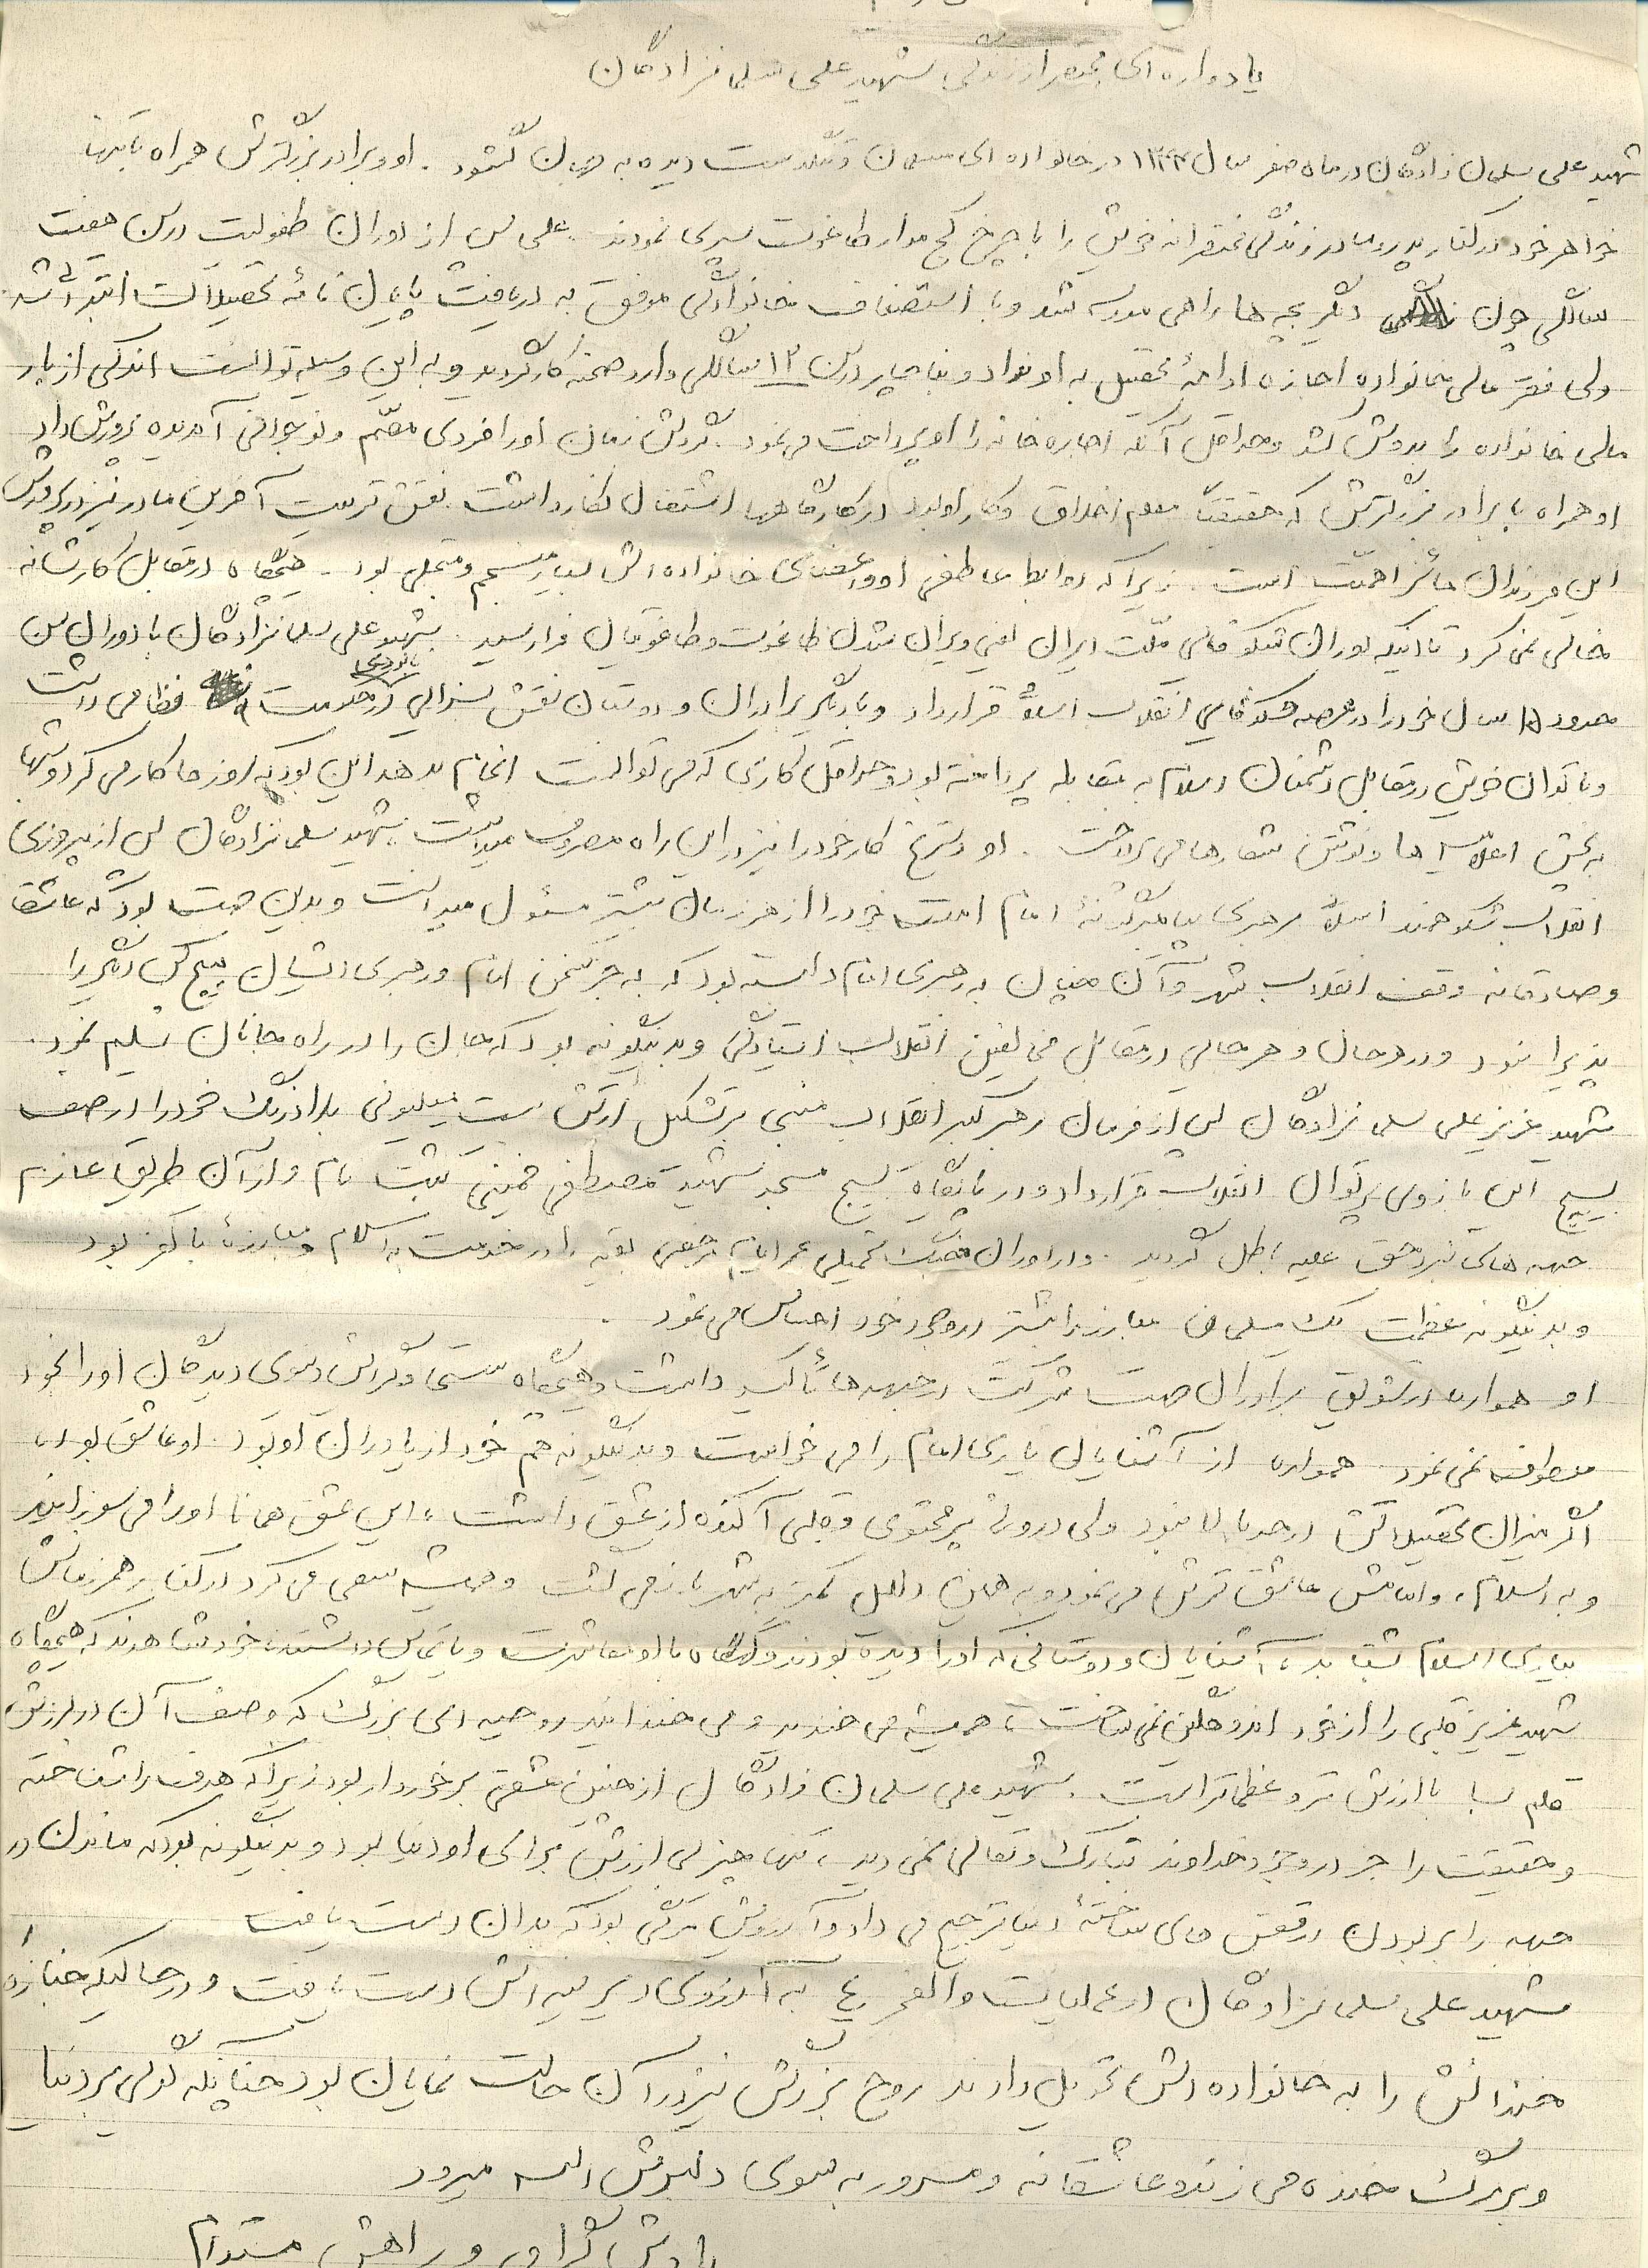 یادواره ای مختصر از زندگی شهید علی سلمانزادگان
شهید علی سلمان زادگان در ماه صفر سال ۱۳۴۴ در خانواده ای مسلمان و تنگدست دیده به جهان گشود . او و برادر بزرگترش همراه با تنها
خواهر خود در کنار پدر و مادر زندگی فقیرانه خویش را با چرخ کج مدار طاغوت سپری نمودند . علی پس از دوران طفولیت در سن هفت
سالگی چون دیگر بچه ها راهی مدرسه شد و با استضعاف خانوادگی موفق به دریافت پایان نامهٔ تحصیلات ابتدائی شد
ولی فقر مالی خانواده اجازه ادامهٔ تحصیل به او نداد و بناچار در سن ۱۲ سالگی وارد صحنه کار گردید و به این وسیله توانست اندکی از بار
مالی خانواده را بدوش کشد و حداقل آنکه اجاره خانه را او پرداخت می نمود . گردش زمان او را فردی مصمّم و نوجوانی آبدیده پرورش داد
او همراه با برادر بزرگترش که حقیقتاً معلم اخلاق و کار او بود در کارگاهها اشتغال بکار داشت . نقش تربیت آفرین مادر نیز در پرورش
این فرزندان حائز اهمیّت است . زیرا که روابط عاطفی او و اعضای خانواده اش بسیار منسجم و متجلی بود . هیچگاه در مقابل کار شانه
خالی نمی کرد تا اینکه دوران شکوفائی ملّت ایران یعنی ویران شدن طاغوت و طاغوتیان فرا رسید . شهید علی سلمانزادگان با دوران سن
حدود ۱۵ سال خود را در عرصه شکوفایی انقلاب اسلامی قرار داد و با دیگر برادران و دوستان نقش بسزائی در نابودی حکومت نظامی داشت
و با توان خویش در مقابل دشمنان اسلام به مقابله پرداخته بود و حداقل کاری که می توانست انجام بدهد این بود که روزها کار می کرد و شبها
به پخش اعلامیه ها و نوشتن شعارها می پرداخت . او دسترنج کار خود را نیز در این راه مصروف میداشت . شهید سلمانزادگان پس از پیروزی
انقلاب شکوهمند اسلامی به رهبری پیامبرگونهٔ امام امت خود را از هر زمان بیشتر مسئول میدانست و بدین جهت بود که عاشقانه
و صادقانه وقف انقلاب شد و آن چنان به رهبری امام دلبسته بود که به جز سخن امام و رهبری ایشان هیچ کس دیگر را
پذیرا نبود و در هر حال و هر جائی در مقابل مخالفین انقلاب ایستادگی و بدینگونه بود که جان را در راه جانان تسلیم نمود .
شهید عزیز علی سلمانزادگان پس از فرمان رهبر کبیر انقلاب مبنی بر تشکیل ارتش بیست میلیونی بلادرنگ خود را در صف
بسیج این بازوی پرتوان انقلاب قرار داد و در پایگاه بسیج مسجد شهید مصطفی خمینی ثبت نام و از آن طریق عازم
جبهه های نبرد حق علیه باطل گردید . و در دوران جنگ تحمیلی عمر ایام مرخصی بقیه را در خدمت به اسلام و مبارزهٔ با کفر بود
و بدینگونه عظمت یک مسلمان مبارز را بیشتر در وجود خود احساس می نمود .
او همواره در تشویق برادران جهت شرکت در جبهه ها تأکید داشت و هیچگاه سستی و گرایش دنیوی دیدگان او را بخود
معطوف نمی نمود . همواره از آشنایان یاری امام را می خواست و بدینگونه هم خود از یاوران او بود . او عاشق بود،
اگر میزان تحصیلاتش در حد بالا نبود ولی درونی پر محتوی و قلبی آکنده از عشق داشت ، این عشق همانا او را می سوزانید
و به اسلام، و امامش عاشق ترش می نمود و به همین دلیل کمتر به شهر باز می گشت و همیشه سعی می کرد در کنار همرزمانش
بیاری اسلام بشتابد ، آشنایان و دوستانی که او را دیده بودند و گهگاه با او معاشرت و یا تماس داشتند خود شاهدند که هیچگاه
شهید عزیز قلبی را از خود اندوهگین نمی ساخت ، همیشه می خندید و می خندانید روحیه ای بزرگ که وصف آن در لرزش
قلم بسا با ارزش تر و عظیم تر است . شهید علی سلمان زادگان از چنین عشقی برخوردار بود زیرا که هدف را شناخته
و حقیقت را جز در وجود خداوند تبارک و تعالی نمی دید ، تنها چیز بی ارزش برای او دنیا بود و بدینگونه بود که ماندن در
جبهه را بر بودن در قفس های ساختهٔ دنیا ترجیح می داد و آرزویش مرگی بود که بدان دست یافت
شهید علی سلمانزادگان در عملیات والفجر ۴ به آرزوی دیرینه اش دست یافت و در حالیکه جنازهٔ
خندانش را به خانواده اش تحویل دادند روح بزرگش نیز در آن حالت نمایان بود چنانکه گوئی بر دنیا
و بر مرگ خنده می زند و عاشقانه و مسرور به سوی دلبرش الله میرود
یادش گرامی و راهش مستدام